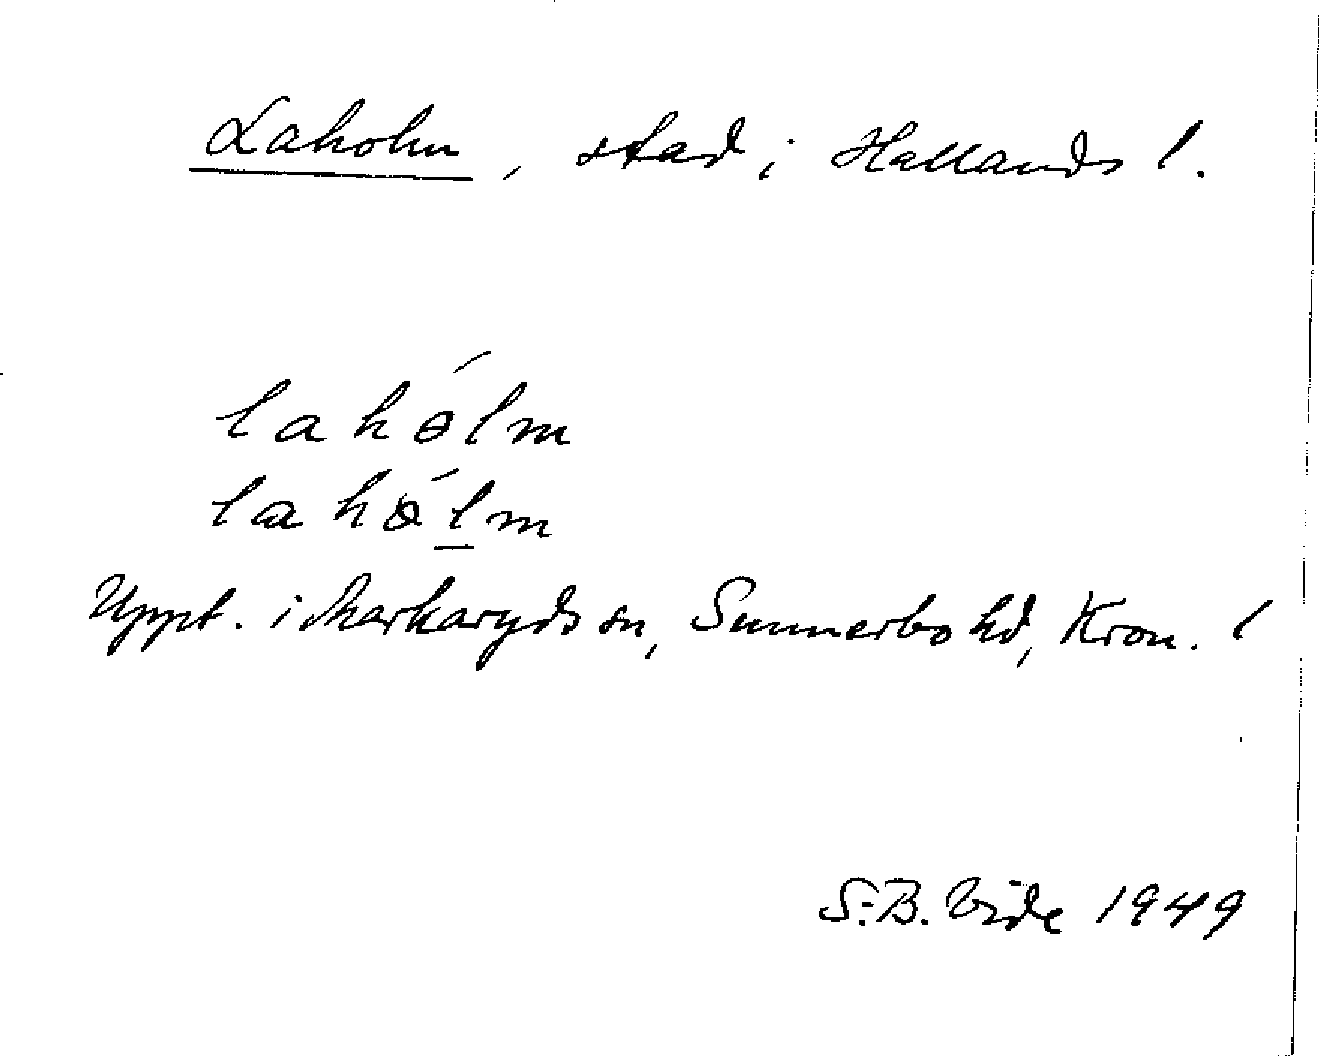 Laholm, stad i Hallands l.
lahɵ́lm
lahɵ́l̲m
Uppt. i Markaryds sn, Sunnerbo hd, Kron. l
S.-B. Vide 1949